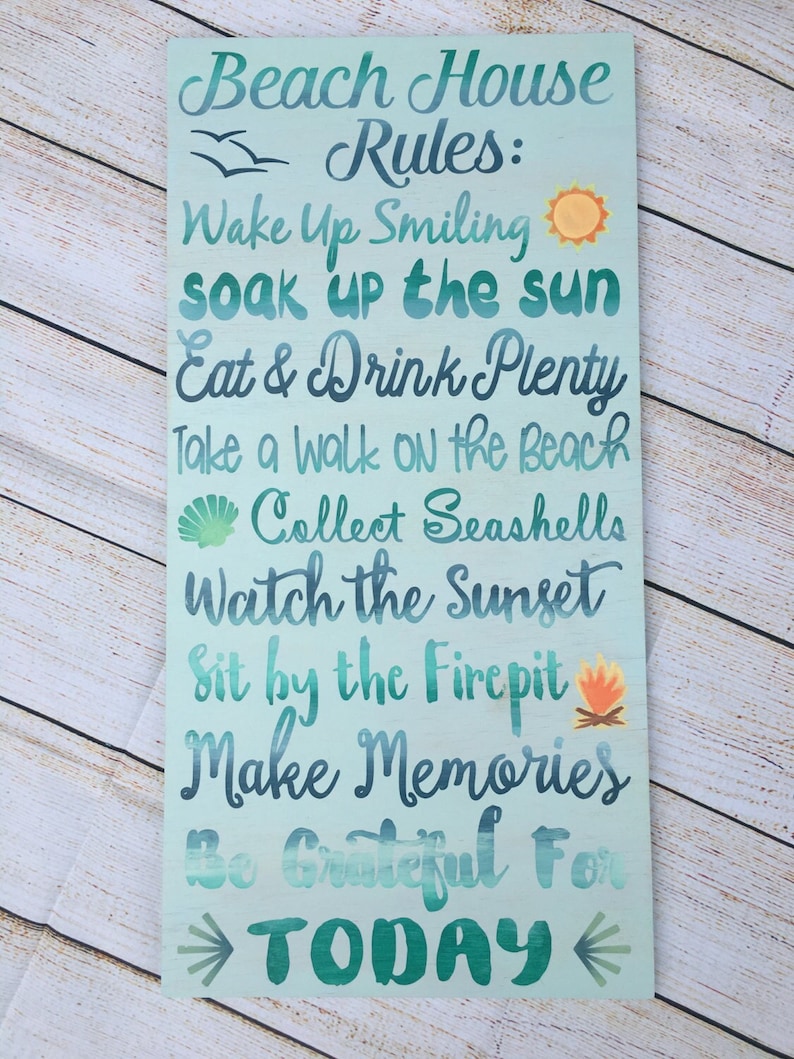 Beach House
Rules:
Wake Up Smiling
soak up the sun
Eat & Drink Plenty
Take a Walk on the Beach
Collect Seashells
Watch the Sunset
Sit by the Firepit
Make Memories
Be Grateful For
TODAY